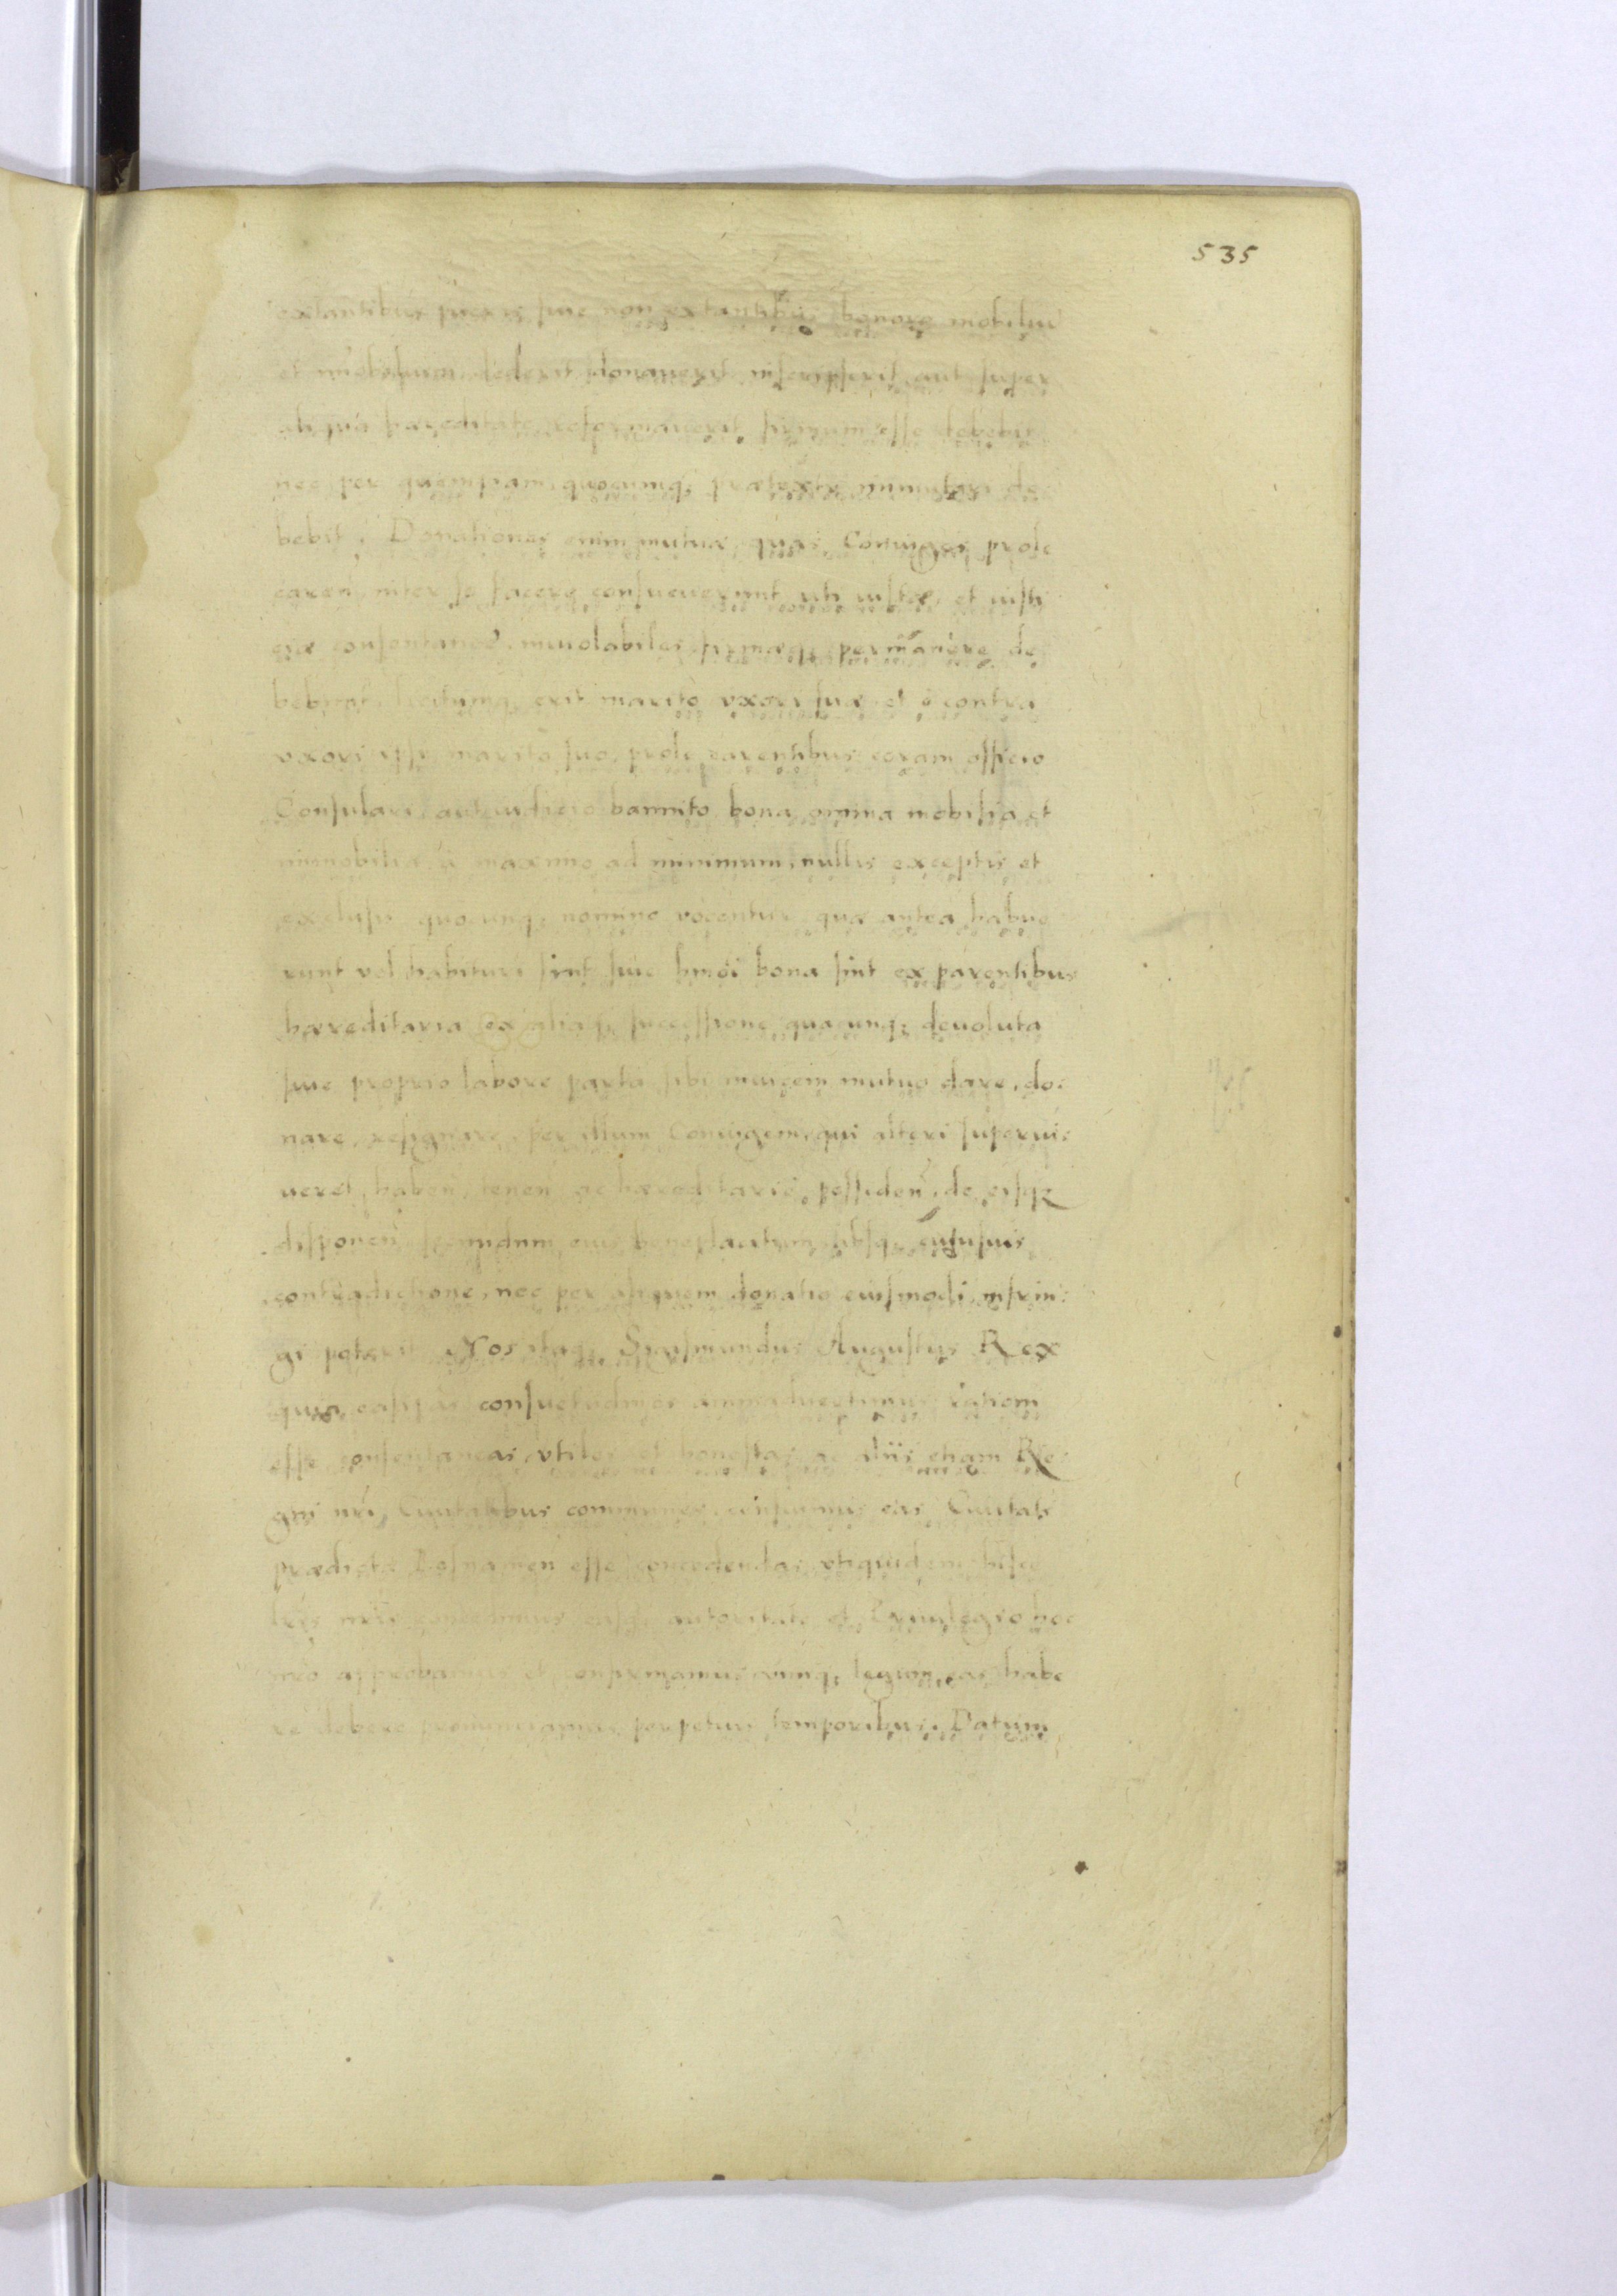 535
extantibus pueris siue non extantibus, bonorũ mobiliũ
et im̃obilium, dederit donauerit, inscripserit, aut super
aliqua hæreditate reformauerit, firmum esse debebit
nec per quempiam quocunq; prætextu immutari de
bebit. Donationes enim mutuæ, quas Coniuges prole
caren̄ inter se facere consueuerunt uti iustæ, et iusti
ciæ consentaneæ, inuiolabiles firmæq; permanere de
bebunt, licitumq; erit marito uxori suæ et è contra
uxori ipsi marito suo, prole carentibus coram officio
Consulari, aut iudicio bannito bona omnia mobilia et
immobilia à maximo ad minimum, nullis exceptis et
exclusis quocunq; nomine vocentur, quæ antea habue
runt vel habituri sint siue hm̃oi bona sint ex parentibus
hæreditaria ex aliaq; successione quacunq; deuoluta
siue proprio labore parta sibi inuicem mutuo dare, do:
nare, resignare, per illum Coniugem, qui alteri superui:
ueret, haben̄, tenen̄ ac hæreditariè possiden̄, de eisq;
disponen̄ secundum eius beneplacitum absq; cuiusuis
contradictione, nec per aliquem donatio eiusmodi infrin:
gi poterit. Nos itaq; Sigismundus Augustus Rex
quia easdem consuetudines animaduertimus rationi
esse consentaneas, vtiles et honestas ac aliis etiam Re
gni nr̃i Ciuitatibus communes, censuimus eas Ciuitati
prædictæ Posnanien esse concedendas vtiquidem hisce
lr̃is nr̃is concedimus easq; autoritate et Priuilegio hoc
nr̃o approbamus et confirmamus vimq; legum eas habe
re debere pronunciamus perpetuis temporibus. Datum